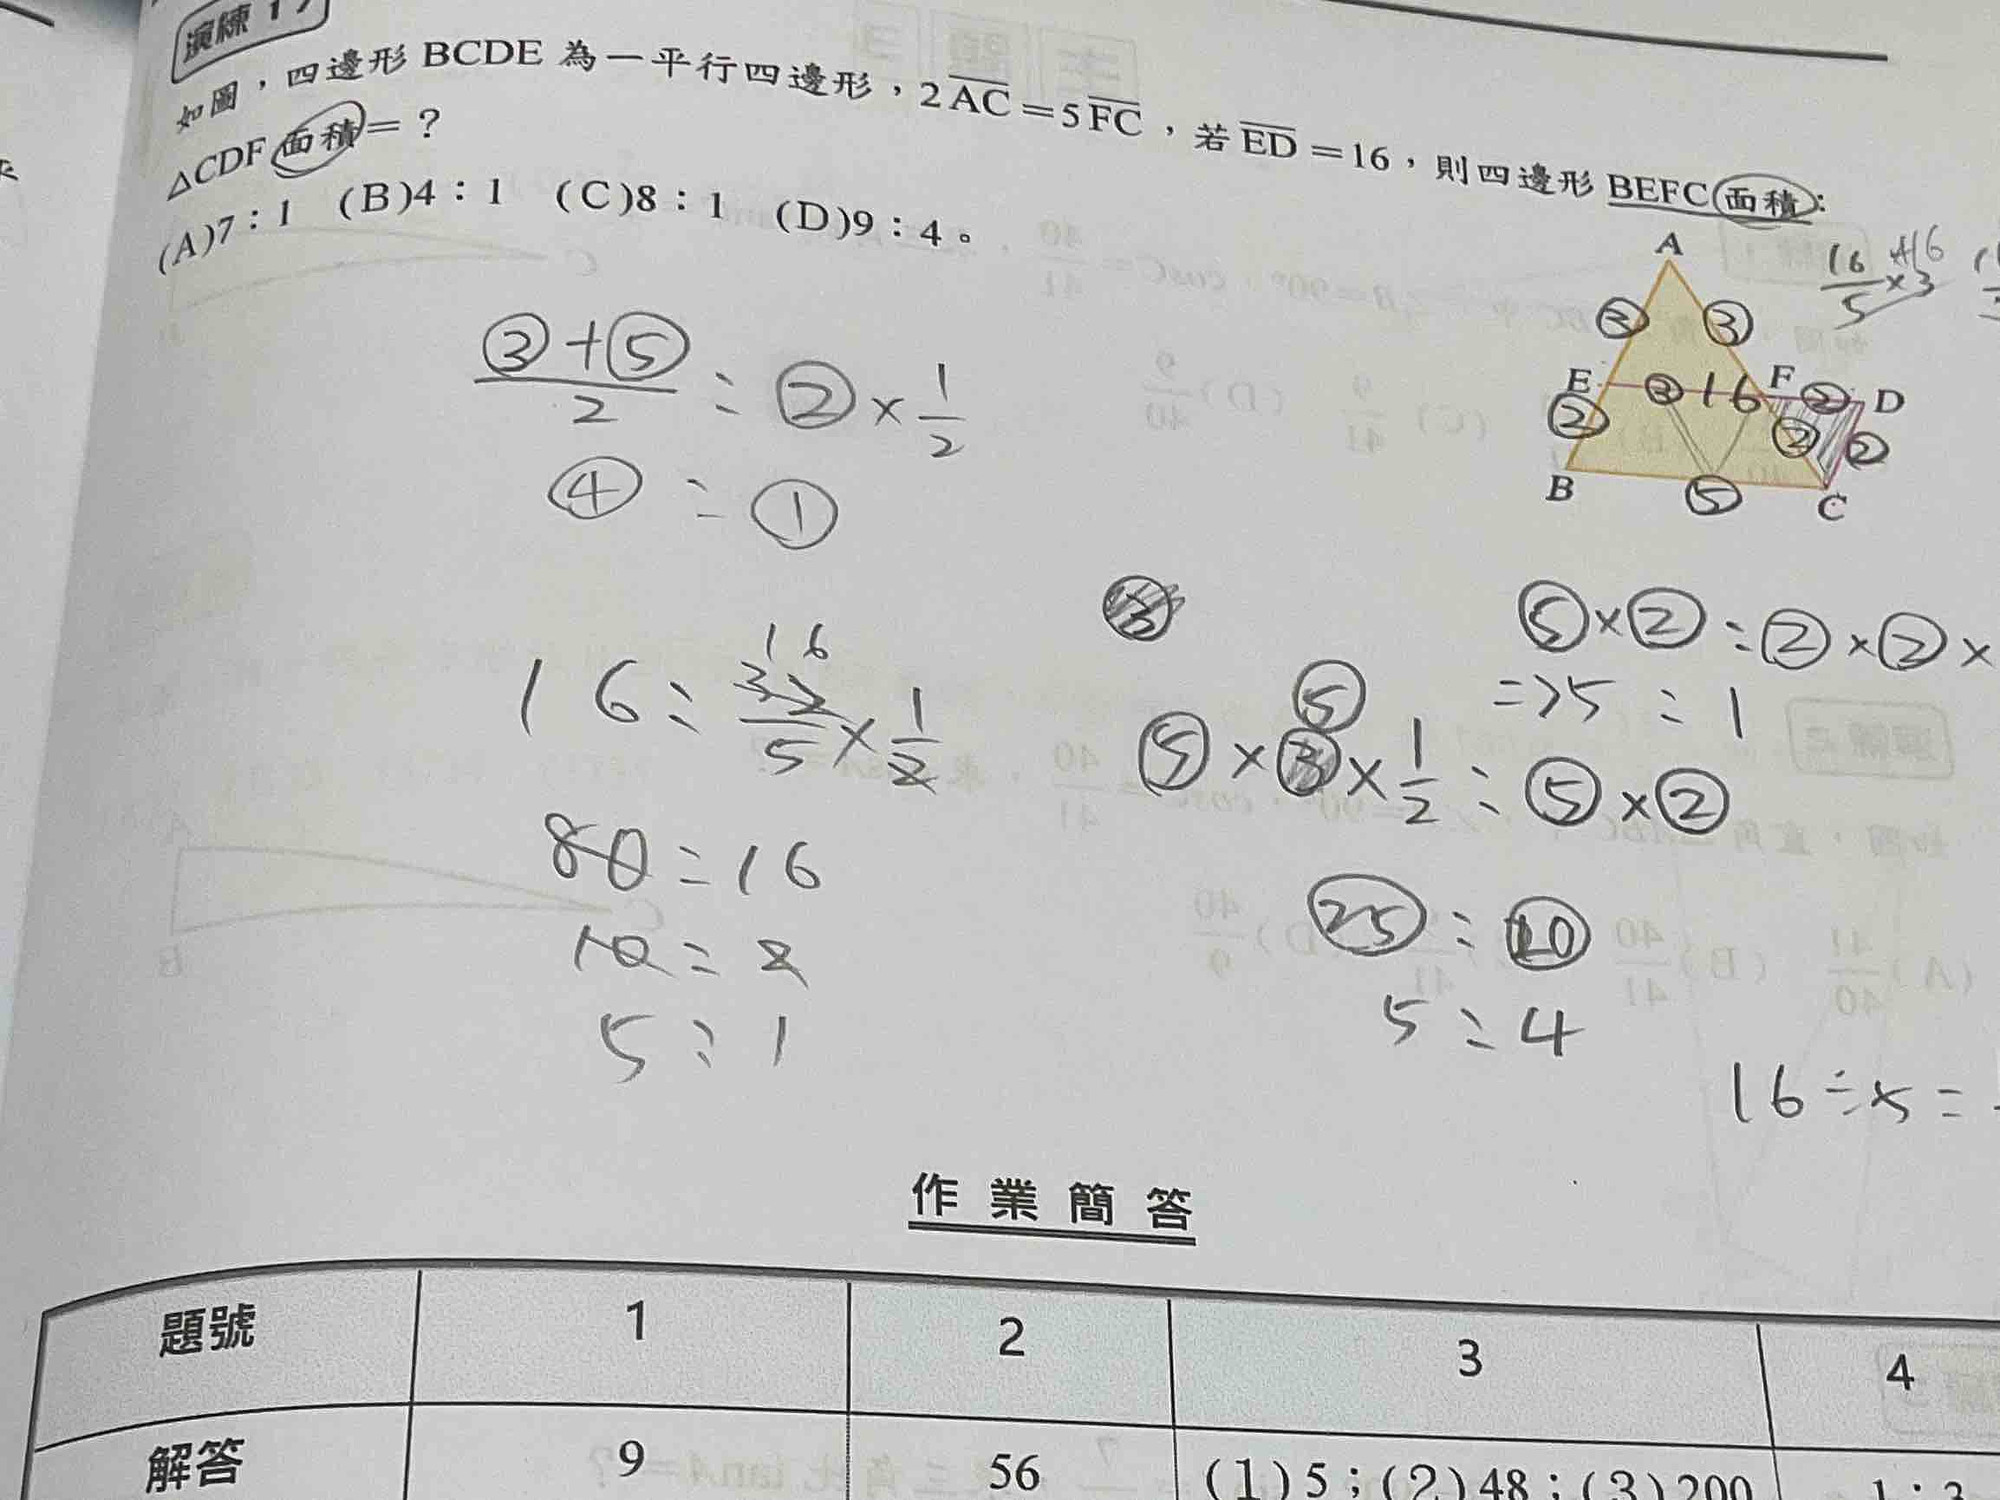 演練 17
如圖，四邊形 BCDE 為一平行四邊形，2AC=5FC，若ED=16，則四邊形 BEFC面積：
△CDF面積=？
(A)7：1 (B)4：1 (C)8：1 (D)9：4。
A
③ ③
E ③ 16 F ② D
② ② ②
B ⑤ C
16/5 ×3
16
(③+⑤)/2 : ②×1/2
④ : ①
16 : 16/5 × 1/2
80 : 16
10 : 2
5 : 1
⑤×②:②×②×
=>5 : 1
⑤
⑤×③×1/2 : ⑤×②
㉕ : ⑩
5 : 4
16÷5=
作業簡答
題號 1 2 3 4
解答 9 56 (1)5；(2)48；(3)200